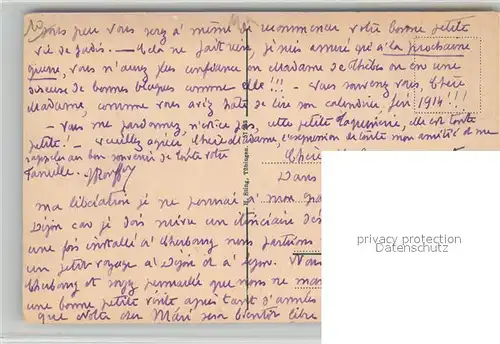 après peu vous serez à même de recommencer votre bonne petite
vie de jadis. — Cela ne fait rien, je suis assuré qu'à la prochaine
guerre, vous n'aurez plus confiance en Madame de Thèbes ou en une
diseuse de bonnes blagues comme elle!!! — Vous souvenez vous, Chère
Madame, comme vous aviez hâte de lire son calendrier pour 1914!!!
— Vous me pardonnez, n'est-ce pas, cette petite taquinerie, elle est toute
petite! — Veuillez agréer Chère Madame, l'expression de toute mon amitié et me
rappeler au bon souvenir de toute votre
Famille.
Chère
Dans
ma libération je ne pensai à mon pa
Dijon car je dois suivre un itinéraire des
une fois installé à Cherbourg nous partirons
un petit voyage à Dijon et à Lyon. Nous
Cherbourg et soyez persuadée que nous ne man
une bonne petite visite après tant d'années
que votre cher Mari sera bientôt libre
H. Sting, Tübingen
privacy protection
Datenschutz